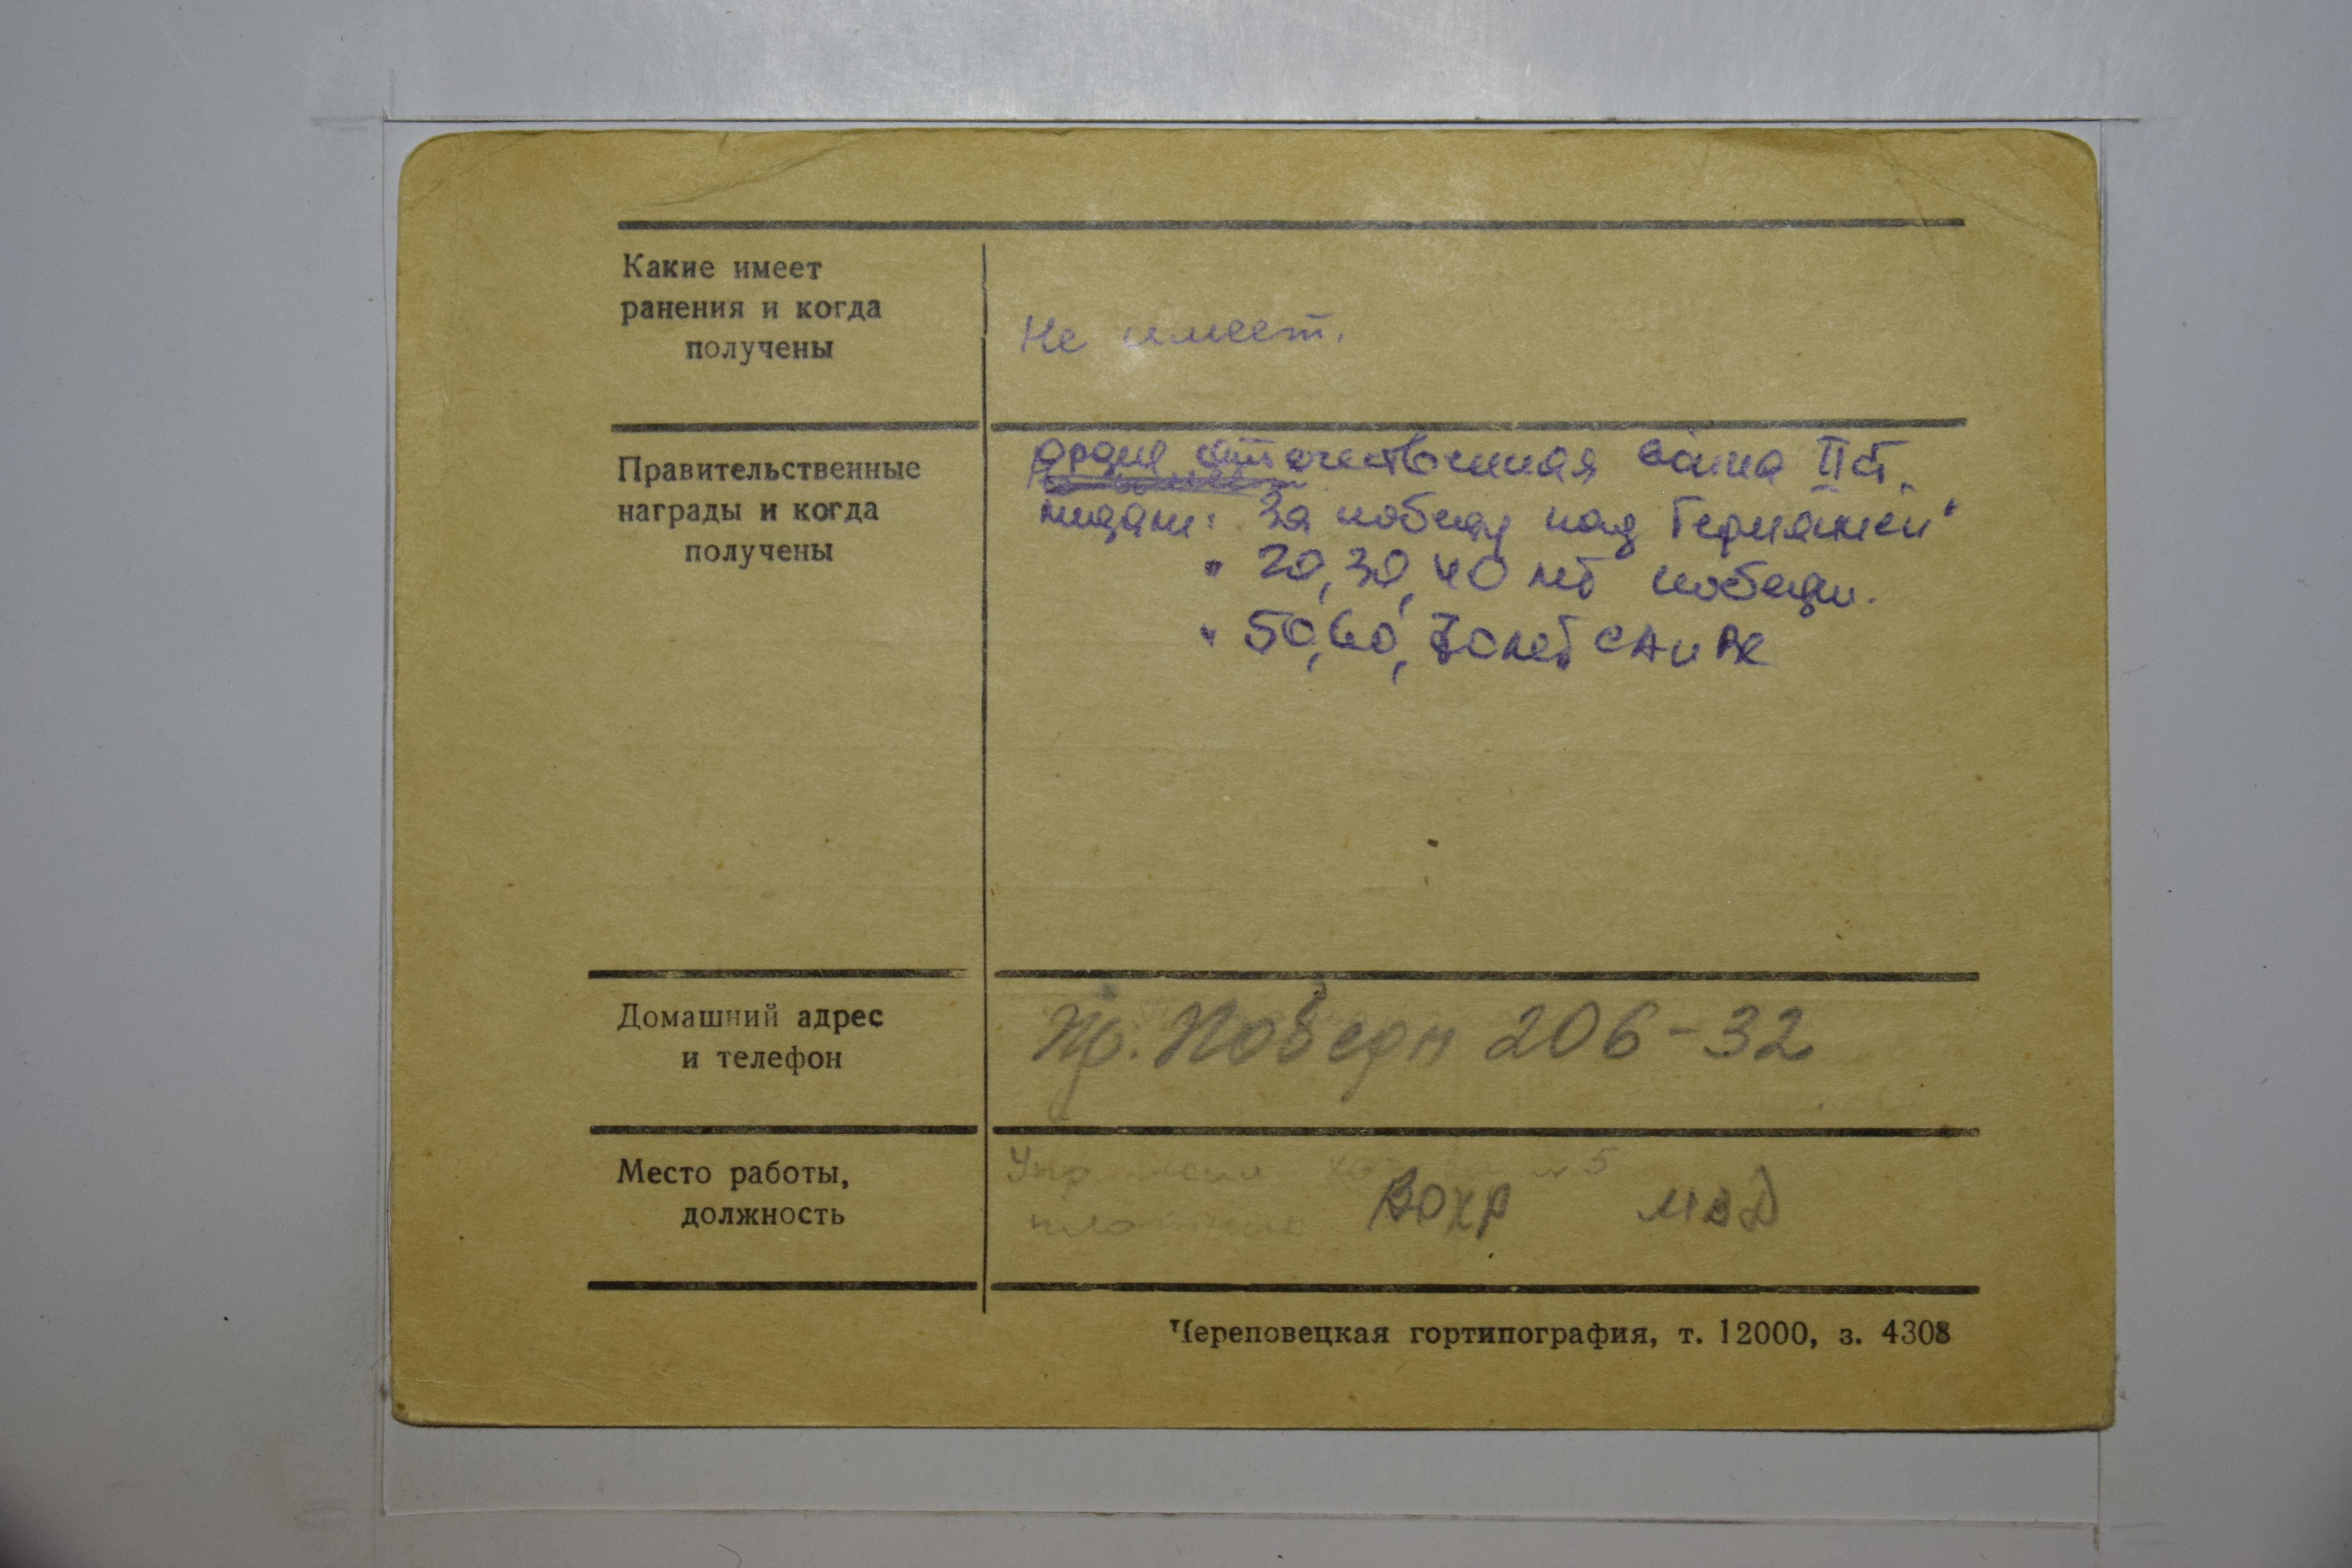 Какие имеет
ранения и когда
получены
Не имеет.
Правительственные
награды и когда
получены
орден отечественная война II ст.
медали: "За победу над Германией"
" 20, 30, 40 лет победы.
" 50, 60, 70 лет СА и
Домашний адрес
и телефон
Пр. Победы 206-32
Место работы,
должность
№5
ВОХР МВД
Череповецкая гортипография, т. 12000, з. 4308